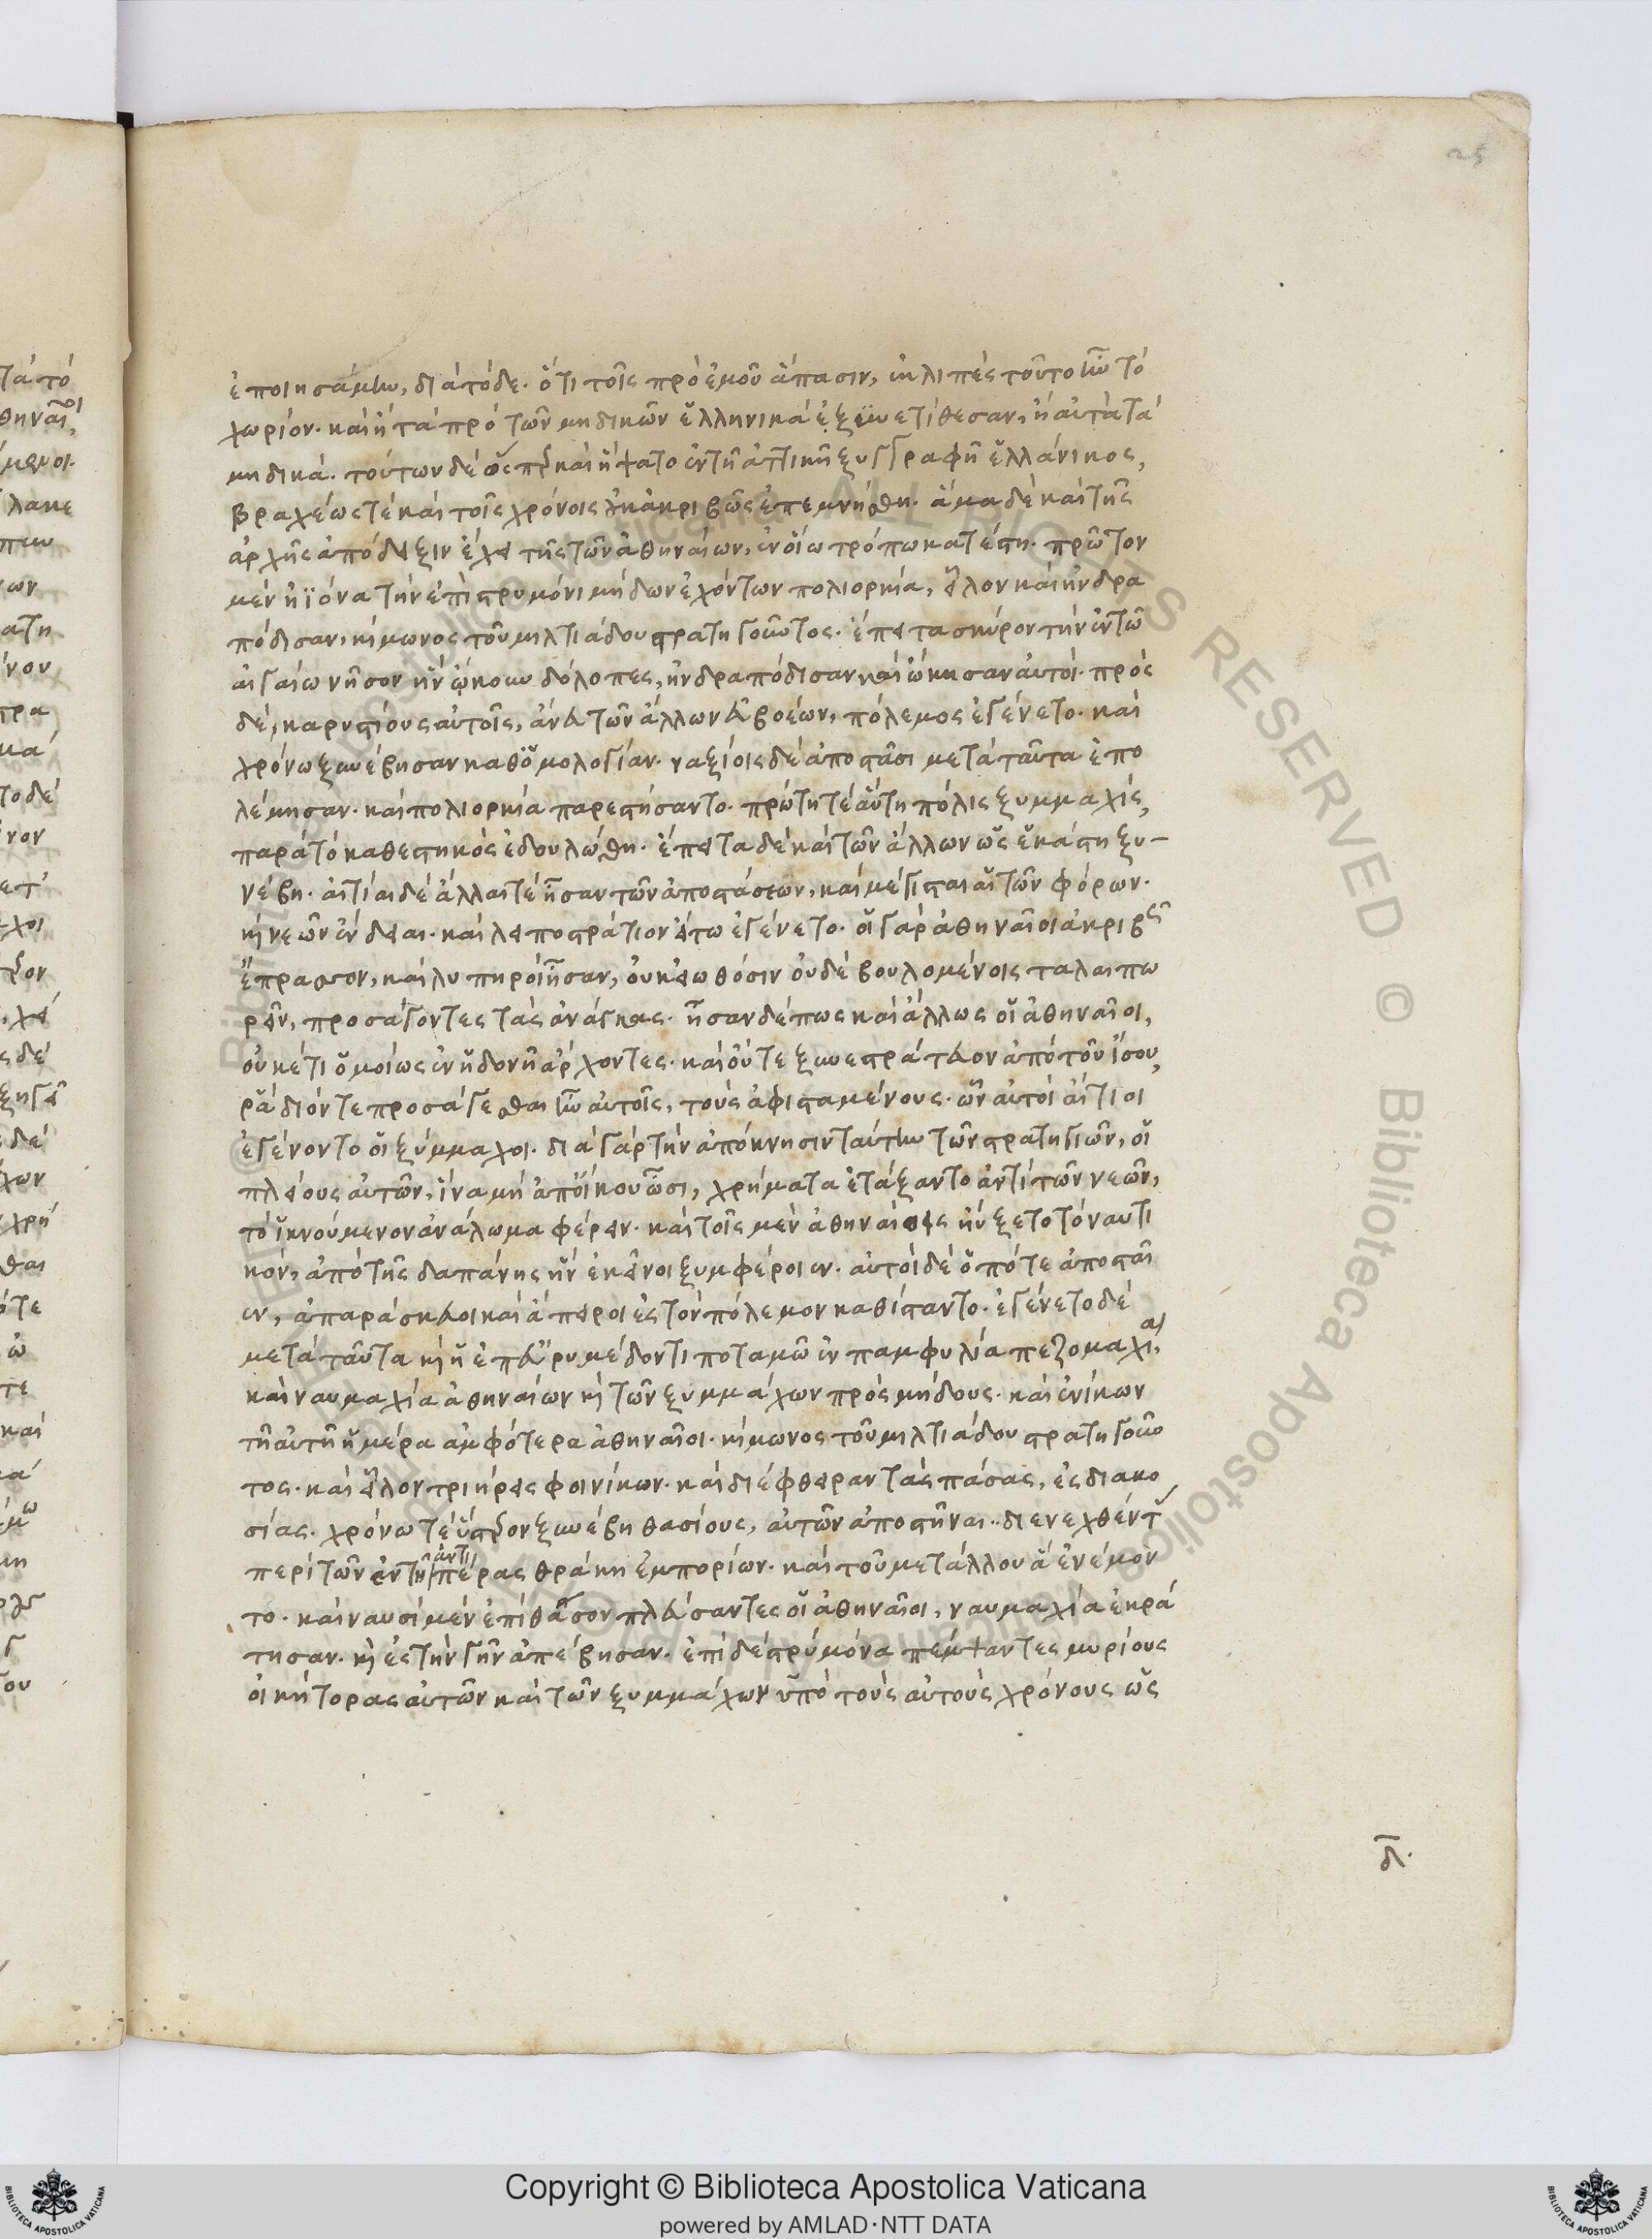 25
ἐποιησάμην, διὰ τόδε. ὅτι τοῖς πρὸ ἐμοῦ ἅπασιν, ἐκλιπὲς τοῦτο ἦν τὸ
χωρίον. καὶ ἢ τὰ πρὸ τῶν μηδικῶν ἑλληνικὰ ἐξυνετίθεσαν, ἢ αὐτὰ τὰ
μηδικά. τούτων δὲ ὅσπερ καὶ ἥψατο ἐν τῇ ἀττικῇ ξυγγραφῇ ἑλλάνικος,
βραχέως τὲ καὶ τοῖς χρόνοις οὐκ ἀκριβῶς ἐπεμνήσθη. ἅμα δὲ καὶ τῆς
ἀρχῆς ἀπόδειξιν ἔχει τῆς τῶν ἀθηναίων, ἐν οἵω τρόπω κατέστη. πρῶτον
μὲν ἠϊόνα τὴν ἐπὶ στρυμόνι μήδων ἐχόντων πολιορκία, εἷλον καὶ ἠνδρα
πόδισαν, κίμωνος τοῦ μιλτιάδου στρατηγοῦντος. ἔπειτα σκύρον τὴν ἐν τῶ
αἰγαίω νῆσον ἣν ᾤκουν δόλοπες, ἠνδραπόδισαν καὶ ὤκησαν αὐτοί. πρὸς
δὲ, καρυστίους αὐτοῖς, ἄνευ τῶν ἄλλων εὐβοέων, πόλεμος ἐγένετο. καὶ
χρόνω ξυνέβησαν καθ' ὁμολογίαν. ναξίοις δὲ ἀποστᾶσι μετὰ ταῦτα ἐπο
λέμησαν. καὶ πολιορκία παρεστήσαντο. πρώτη τὲ αὕτη πόλις ξυμμαχὶς,
παρὰ τὸ καθεστηκὸς ἐδουλώθη. ἔπειτα δὲ καὶ τῶν ἄλλων ὡς ἑκάστη ξυ-
νέβη. αἰτίαι δὲ ἄλλαι τὲ ἦσαν τῶν ἀποστάσεων, καὶ μέγισται αἱ τῶν φόρων.
καὶ νεῶν ἔνδειαι. καὶ λειποστράτιον εἴτω ἐγένετο. οἱ γὰρ ἀθηναῖοι ἀκριβῶς
ἔπρασσον, καὶ λυπηροὶ ἦσαν, οὐκ εἰωθόσιν οὐδὲ βουλομένοις ταλαιπω
ρεῖν, προσάγοντες τὰς ἀνάγκας. ἦσαν δέ πως καὶ ἄλλως οἱ ἀθηναῖοι,
οὐκέτι ὁμοίως ἐν ἡδονῇ ἄρχοντες. καὶ οὔτε ξυνεστράτευον ἀπὸ τοῦ ἴσου,
ῥᾴδιόν τε προσάγεσθαι ἦν αὐτοῖς, τοὺς ἀφισταμένους. ὧν αὐτοὶ αἴτιοι
ἐγένοντο οἱ ξύμμαχοι. διὰ γὰρ τὴν ἀπόκνησιν ταύτην τῶν στρατηγιῶν, οἱ
πλείους αὐτῶν, ἵνα μὴ ἀποίκου ὦσι, χρήματα ἐτάξαντο ἀντὶ τῶν νεῶν,
τὸ ἱκνούμενον ἀνάλωμα φέρειν. καὶ τοῖς μὲν ἀθηναίοις ηὔξετο τὸ ναυτι
κὸν, ἀπὸ τῆς δαπάνης ἣν ἐκεῖνοι ξυμφέροιεν. αὐτοὶ δὲ ὁπότε ἀποσταῖ
εν, ἀπαράσκευοι καὶ ἄπειροι ἐς τὸν πόλεμον καθίσταντο. ἐγένετο δὲ
μετὰ ταῦτα καὶ ἡ ἐπ' εὐρυμέδοντι ποταμῶ ἐν παμφυλία πεζομαχία,
καὶ ναυμαχία ἀθηναίων καὶ τῶν ξυμμάχων πρὸς μήδους. καὶ ἐνίκων
τῇ αὐτῇ ἡμέρα ἀμφότερα ἀθηναῖοι. κίμωνος τοῦ μιλτιάδου στρατηγοῦν
τος. καὶ εἷλον τριήρεις φοινίκων. καὶ διέφθειραν τὰς πάσας, ἐς διακο
σίας. χρόνω τὲ ὕστερον ξυνέβη θασίους, αὐτῶν ἀποστῆναι. διενεχθέντας
περὶ τῶν ἐν τῇ ἀντιπέρας θράκη ἐμπορίων. καὶ τοῦ μετάλλου ἃ ἐνέμον
το. καὶ ναυσὶ μὲν ἐπὶ θᾶσον πλεύσαντες οἱ ἀθηναῖοι, ναυμαχία ἐκρά
τησαν. καὶ ἐς τὴν γῆν ἀπέβησαν. ἐπὶ δὲ στρύμόνα πέμψαντες μυρίους
οἰκήτορας αὐτῶν καὶ τῶν ξυμμάχων ὑπὸ τοὺς αὐτοὺς χρόνους ὡς
δ.
Copyright © Biblioteca Apostolica Vaticana
powered by AMLAD·NTT DATA